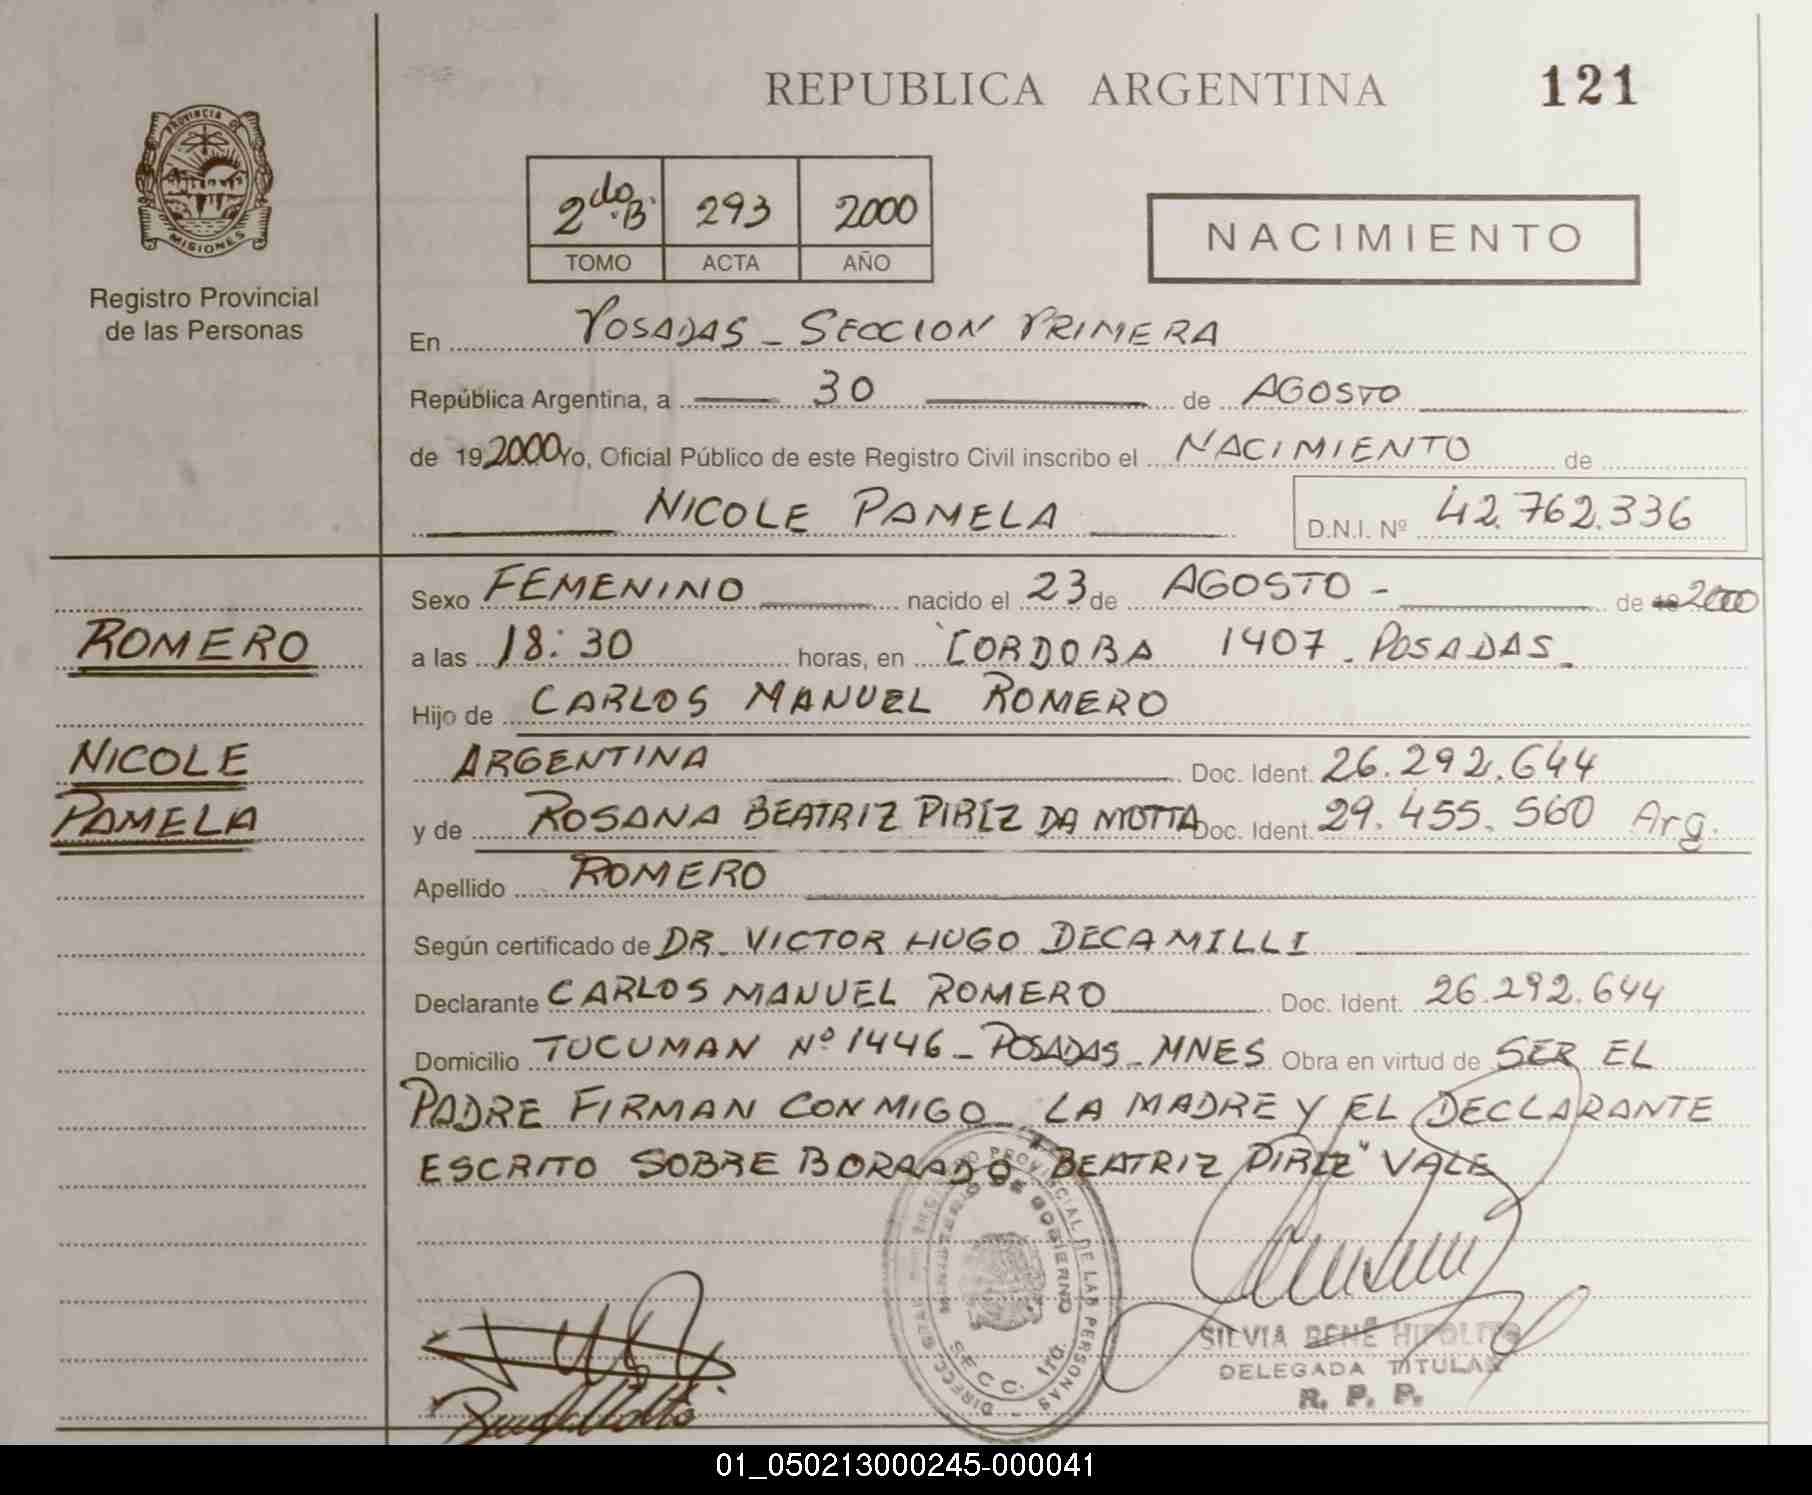 REPUBLICA ARGENTINA 121
PROVINCIA DE
MISIONES
Registro Provincial
de las Personas
2do "B" 293 2000
TOMO ACTA AÑO
NACIMIENTO
En POSADAS - SECCION PRIMERA
República Argentina, a 30 de AGOSTO
de 192000 Yo, Oficial Público de este Registro Civil inscribo el NACIMIENTO de
NICOLE PAMELA D.N.I. Nº 42.762.336
Sexo FEMENINO nacido el 23 de AGOSTO - de 2000
ROMERO
a las 18:30 horas, en CORDOBA 1407 - POSADAS -
Hijo de CARLOS MANUEL ROMERO
NICOLE
ARGENTINA Doc. Ident. 26.292.644
PAMELA
y de ROSANA BEATRIZ PIRIZ DA MOTTA Doc. Ident. 29.455.560 Arg.
Apellido ROMERO
Según certificado de DR. VICTOR HUGO DECAMILLI
Declarante CARLOS MANUEL ROMERO Doc. Ident. 26.292.644
Domicilio TUCUMAN Nº 1446 - POSADAS - MNES Obra en virtud de SER EL
PADRE FIRMAN CONMIGO LA MADRE Y EL DECLARANTE
ESCRITO SOBRE BORRADO "BEATRIZ PIRIZ" VALE
PROVINCIAL DE LAS PERSONAS
DE GOBIERNO
SECC. 1ra.
SILVIA RENÉ HIPOLITO
DELEGADA TITULAR
R. P. P.
01_050213000245-000041